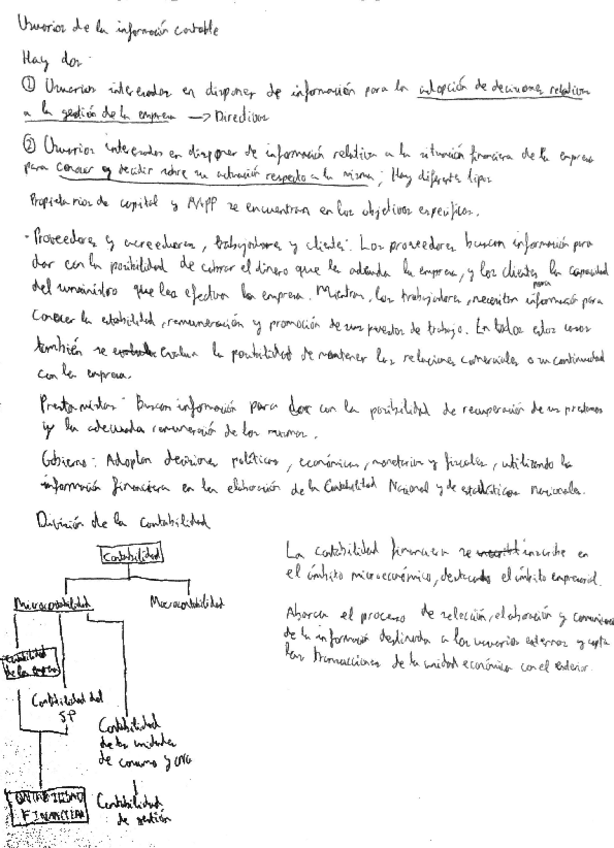 Usuarios de la información contable
Hay dos:
① Usuarios interesados en disponer de información para la adopción de decisiones relativas
a la gestión de la empresa → Directivos
② Usuarios interesados en disponer de información relativa a la situación financiera de la empresa
para conocer y decidir sobre su actuación respecto a la misma; Hay diferentes tipos
Propietarios de capital y AAPP se encuentran en los objetivos específicos.
- Proveedores y acreedores, trabajadores y clientes: Los proveedores buscan información para
dar con la posibilidad de cobrar el dinero que le adeuda la empresa, y los clientes la capacidad
del suministro que les efectua la empresa. Mientras, los trabajadores, necesitan información para
conocer la estabilidad, remuneración y promoción de sus puestos de trabajo. En todos estos casos
también se evalua la posibilidad de mantener las relaciones comerciales o su continuidad
con la empresa.
Prestamistas: Buscan información para dar con la posibilidad de recuperación de sus prestamos
y la adecuada remuneración de los mismos.
Gobierno: Adoptan decisiones políticas, económicas, monetarias y fiscales, utilizando la
información financiera en la elaboración de la Contabilidad Nacional y de estadísticas nacionales.
División de la contabilidad
Contabilidad
Microcontabilidad Macrocontabilidad
Contabilidad
de la empresa
Contabilidad del
SP
Contabilidad
de las unidades
de consumo y
CONTABILIDAD
FINANCIERA
Contabilidad
de gestión
La contabilidad financiera se inscribe en
el ámbito microeconómico, destacando el ámbito empresarial.
Abarca el proceso de selección, elaboración y comunicación
de la información destinada a los usuarios externos y capta
las transacciones de la unidad económica con el exterior.